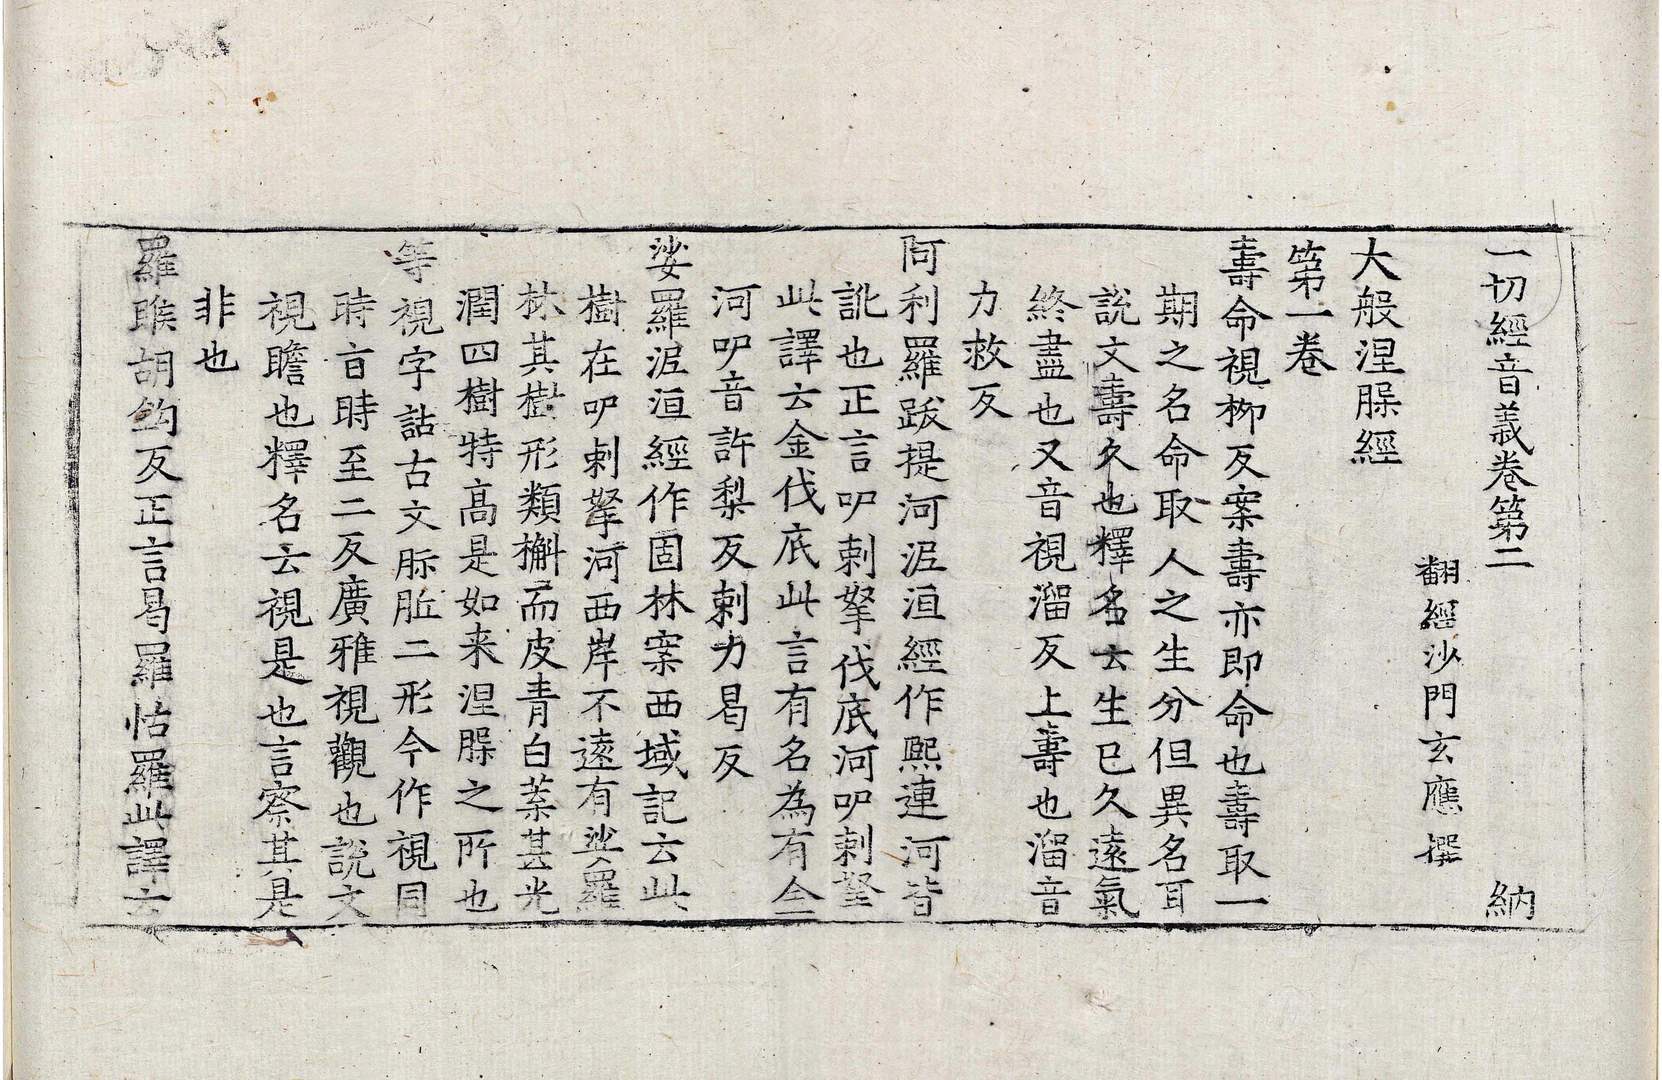 一切經音義卷第二　納
翻經沙門玄應撰
大般涅槃經
第一卷
壽命視柳反案壽亦即命也壽取一
期之名命取人之生分但異名耳
說文壽久也釋名云生已久遠氣
終盡也又音視溜反上壽也溜音
力救反
阿利羅跋提河泥洹經作熙連河皆
訛也正言呬剌拏伐底河呬剌拏
此譯云金伐底此言有名為有金
河呬音許梨反剌力曷反
娑羅泥洹經作固林案西域記云此
樹在呬剌拏河西岸不遠有娑羅
林其樹形類槲而皮青白葉甚光
潤四樹特高是如来涅槃之所也
等視字詁古文眎眂二形今作視同
時旨時至二反廣雅視觀也說文
視瞻也釋名云視是也言察其是
非也
羅睺胡鉤反正言曷羅怙羅此譯云